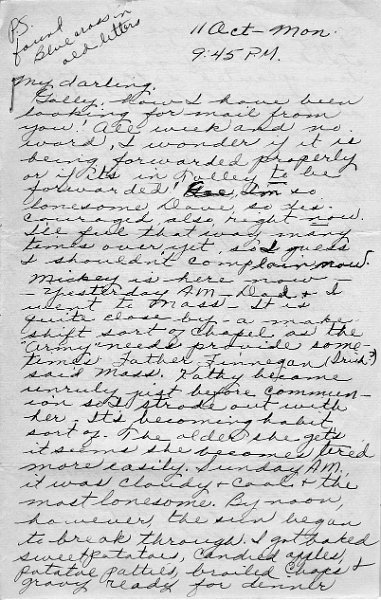 P.S.
found
Blue cross in
old letters
11 Oct - Mon.
9:45 P.M.
My darling,
Golly, how I have been
looking for mail from
you! All week and no
word, I wonder if it is
being forwarded properly
or if it's in Talley to be
forwarded! Gee, I'm so
lonesome Dave, so dis-
couraged also, right now.
I'll feel that way many
times over yet, so I guess
I shouldn't complain now.
Mickey is here now -
Yesterday A.M. Dad & I
went to Mass. It is
quite close by - a make
shift sort of chapel as the
"Army" needs provide some-
times. Father Finnegan (Irish?)
said Mass. Kathy became
unruly just before commun-
ion so I strode out with
her. It's becoming habit,
sort of. The older she gets
it seems she becomes tired
more easily. Sunday A.M.
it was cloudy & cool & the
most lonesome. By noon,
however, the sun began
to break through. I got baked
sweet potatoes, candied apples,
potatoe patties, broiled chops &
gravy ready for dinner